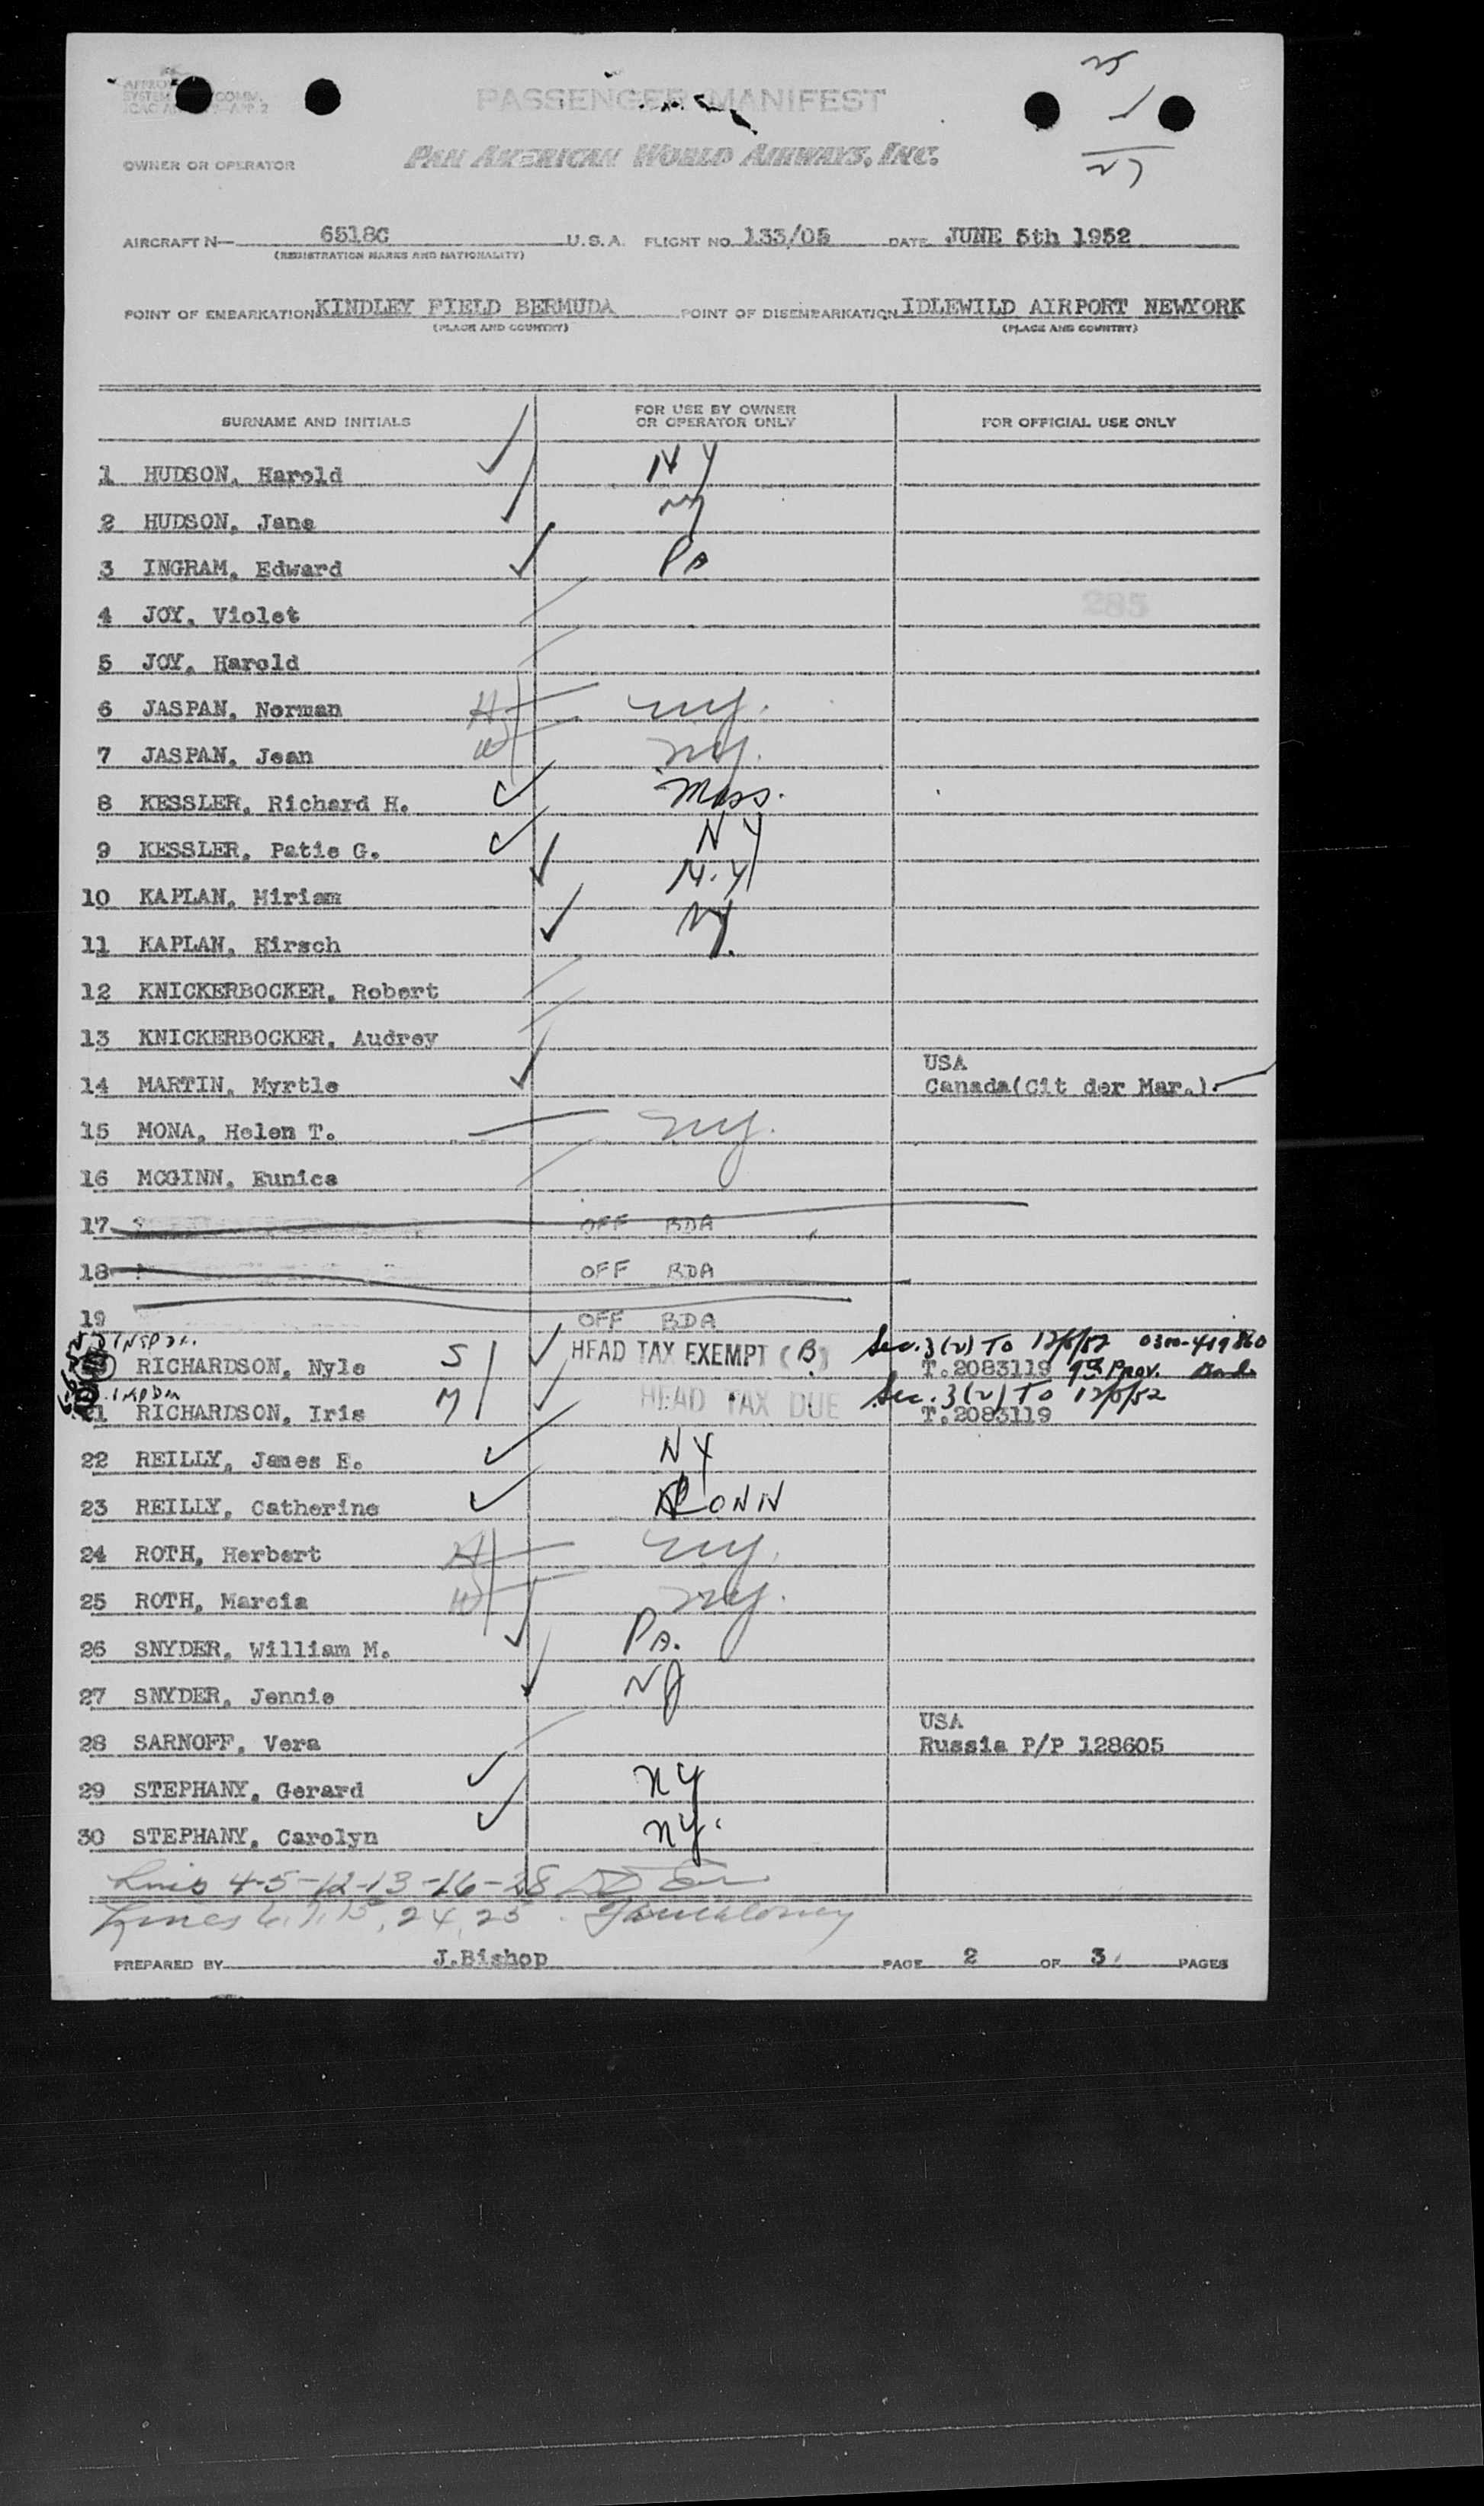 25
1
27
PASSENGER MANIFEST
OWNER OR OPERATOR PAN AMERICAN WORLD AIRWAYS, INC.
AIRCRAFT N— 6518C U.S.A. FLIGHT NO. 133/05 DATE JUNE 5th 1952
(REGISTRATION MARKS AND NATIONALITY)
POINT OF EMBARKATION KINDLEY FIELD BERMUDA POINT OF DISEMBARKATION IDLEWILD AIRPORT NEWYORK
(PLACE AND COUNTRY) (PLACE AND COUNTRY)
SURNAME AND INITIALS FOR USE BY OWNER OR OPERATOR ONLY FOR OFFICIAL USE ONLY
1 HUDSON, Harold NY
2 HUDSON, Jane NY
3 INGRAM, Edward Pa
285
4 JOY, Violet
5 JOY, Harold
6 JASPAN, Norman H ny.
7 JASPAN, Jean W ny.
8 KESSLER, Richard H. Mass.
9 KESSLER, Patie G. NY
10 KAPLAN, Miriam N.Y
11 KAPLAN, Hirsch NY.
12 KNICKERBOCKER, Robert
13 KNICKERBOCKER, Audrey
USA
14 MARTIN, Myrtle Canada(Cit der Mar.)
15 MONA, Helen T. ny.
16 MCGINN, Eunice
17 OFF BDA
18 OFF BDA
19 OFF BDA
RICHARDSON, Nyle S HEAD TAX EXEMPT (B) Sec. 3(2) To 12/5/52 0300-419860
T.2083119
RICHARDSON, Iris M HEAD TAX DUE Sec. 3(2) To 12/5/52
T.2083119
22 REILLY, James E. NY
23 REILLY, Catherine CONN
24 ROTH, Herbert H ny.
25 ROTH, Marcia W ny.
26 SNYDER, William M. Pa.
27 SNYDER, Jennie NJ
USA
28 SARNOFF, Vera Russia P/P 128605
29 STEPHANY, Gerard NY
30 STEPHANY, Carolyn NY.
Lines 4-5-12-13-16-28
Lines 6, 7, 15, 24, 25
PREPARED BY J.Bishop PAGE 2 OF 3 PAGES